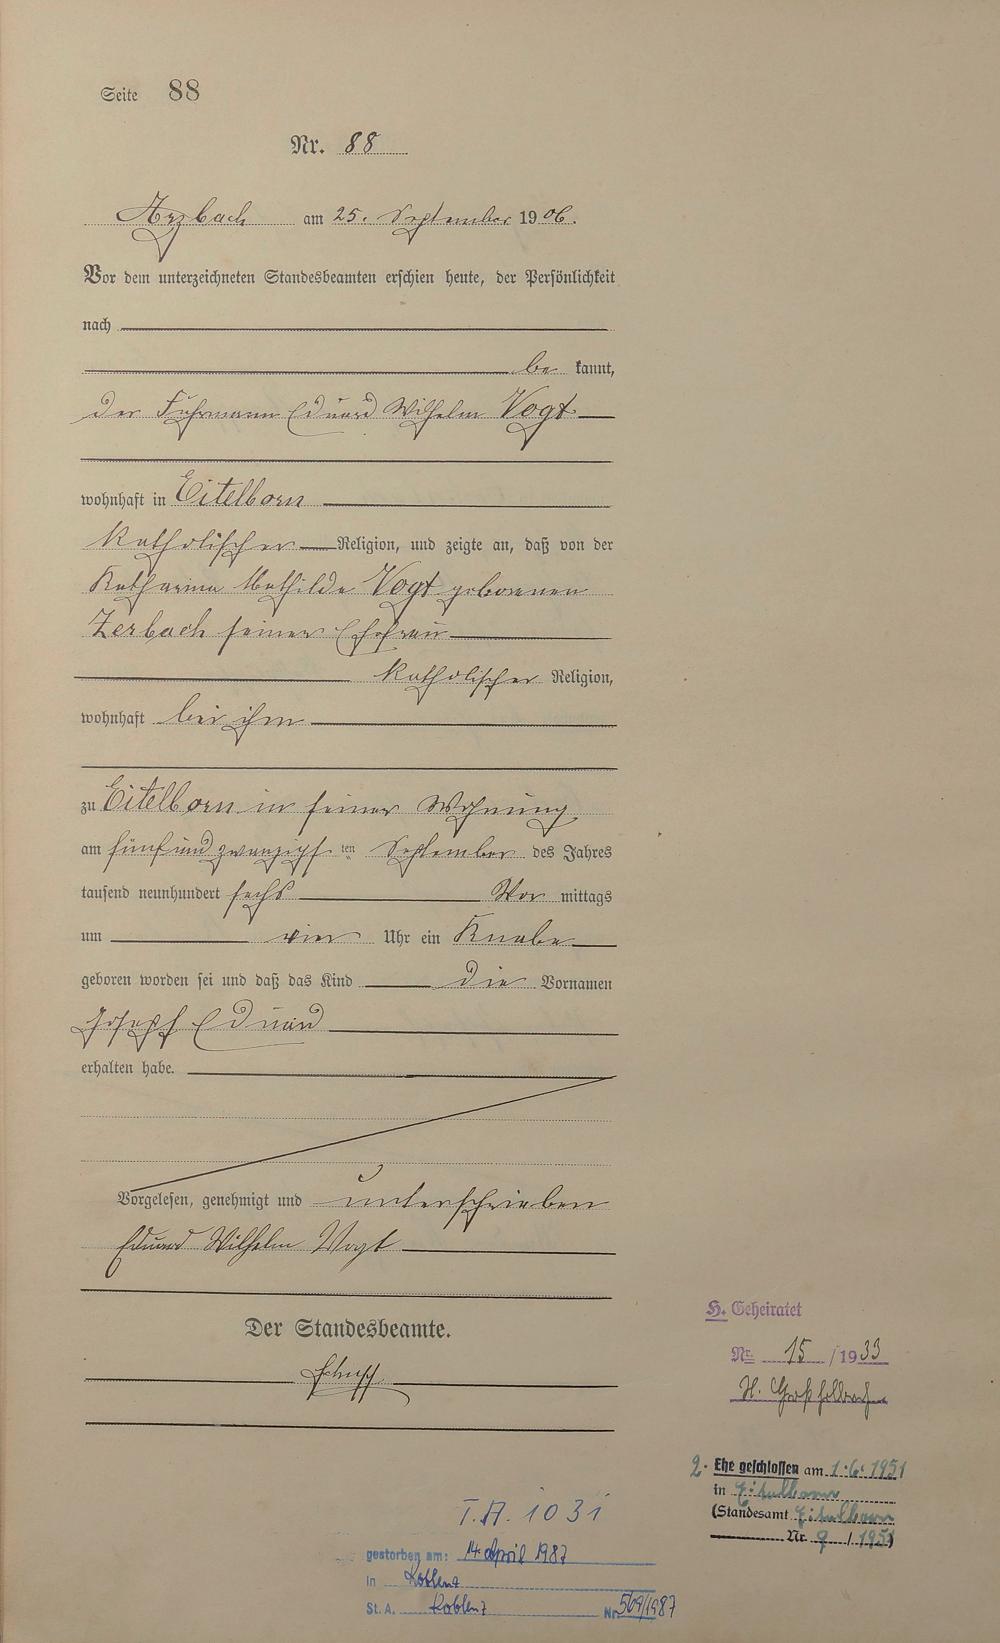 Seite 88
Nr. 88
Arzbach am 25. September 1906.
Vor dem unterzeichneten Standesbeamten erschien heute, der Persönlichkeit
nach
be kannt,
der Fuhrmann Eduard Wilhelm Vogt
wohnhaft in Eitelborn
katholischer Religion, und zeigte an, daß von der
Katharina Mathilde Vogt geborenen
Zerbach seiner Ehefrau
katholischer Religion,
wohnhaft bei ihm
zu Eitelborn in seiner Wohnung
am fünf und zwanzigsten September des Jahres
tausend neunhundert sechs Vor mittags
um vier Uhr ein Knabe
geboren worden sei und daß das Kind die Vornamen
Joseph Eduard
erhalten habe.
Vorgelesen, genehmigt und unterschrieben
Eduard Wilhelm Vogt
Der Standesbeamte.
H. Geheiratet
Nr. 15 /1933
2. Ehe geschlossen am 1.6.1951
in Eitelborn
(Standesamt Eitelborn
Nr. 9 / 1951)
T.A. 1031
gestorben am: 14. April 1987
in Koblenz
St. A. Koblenz Nr.